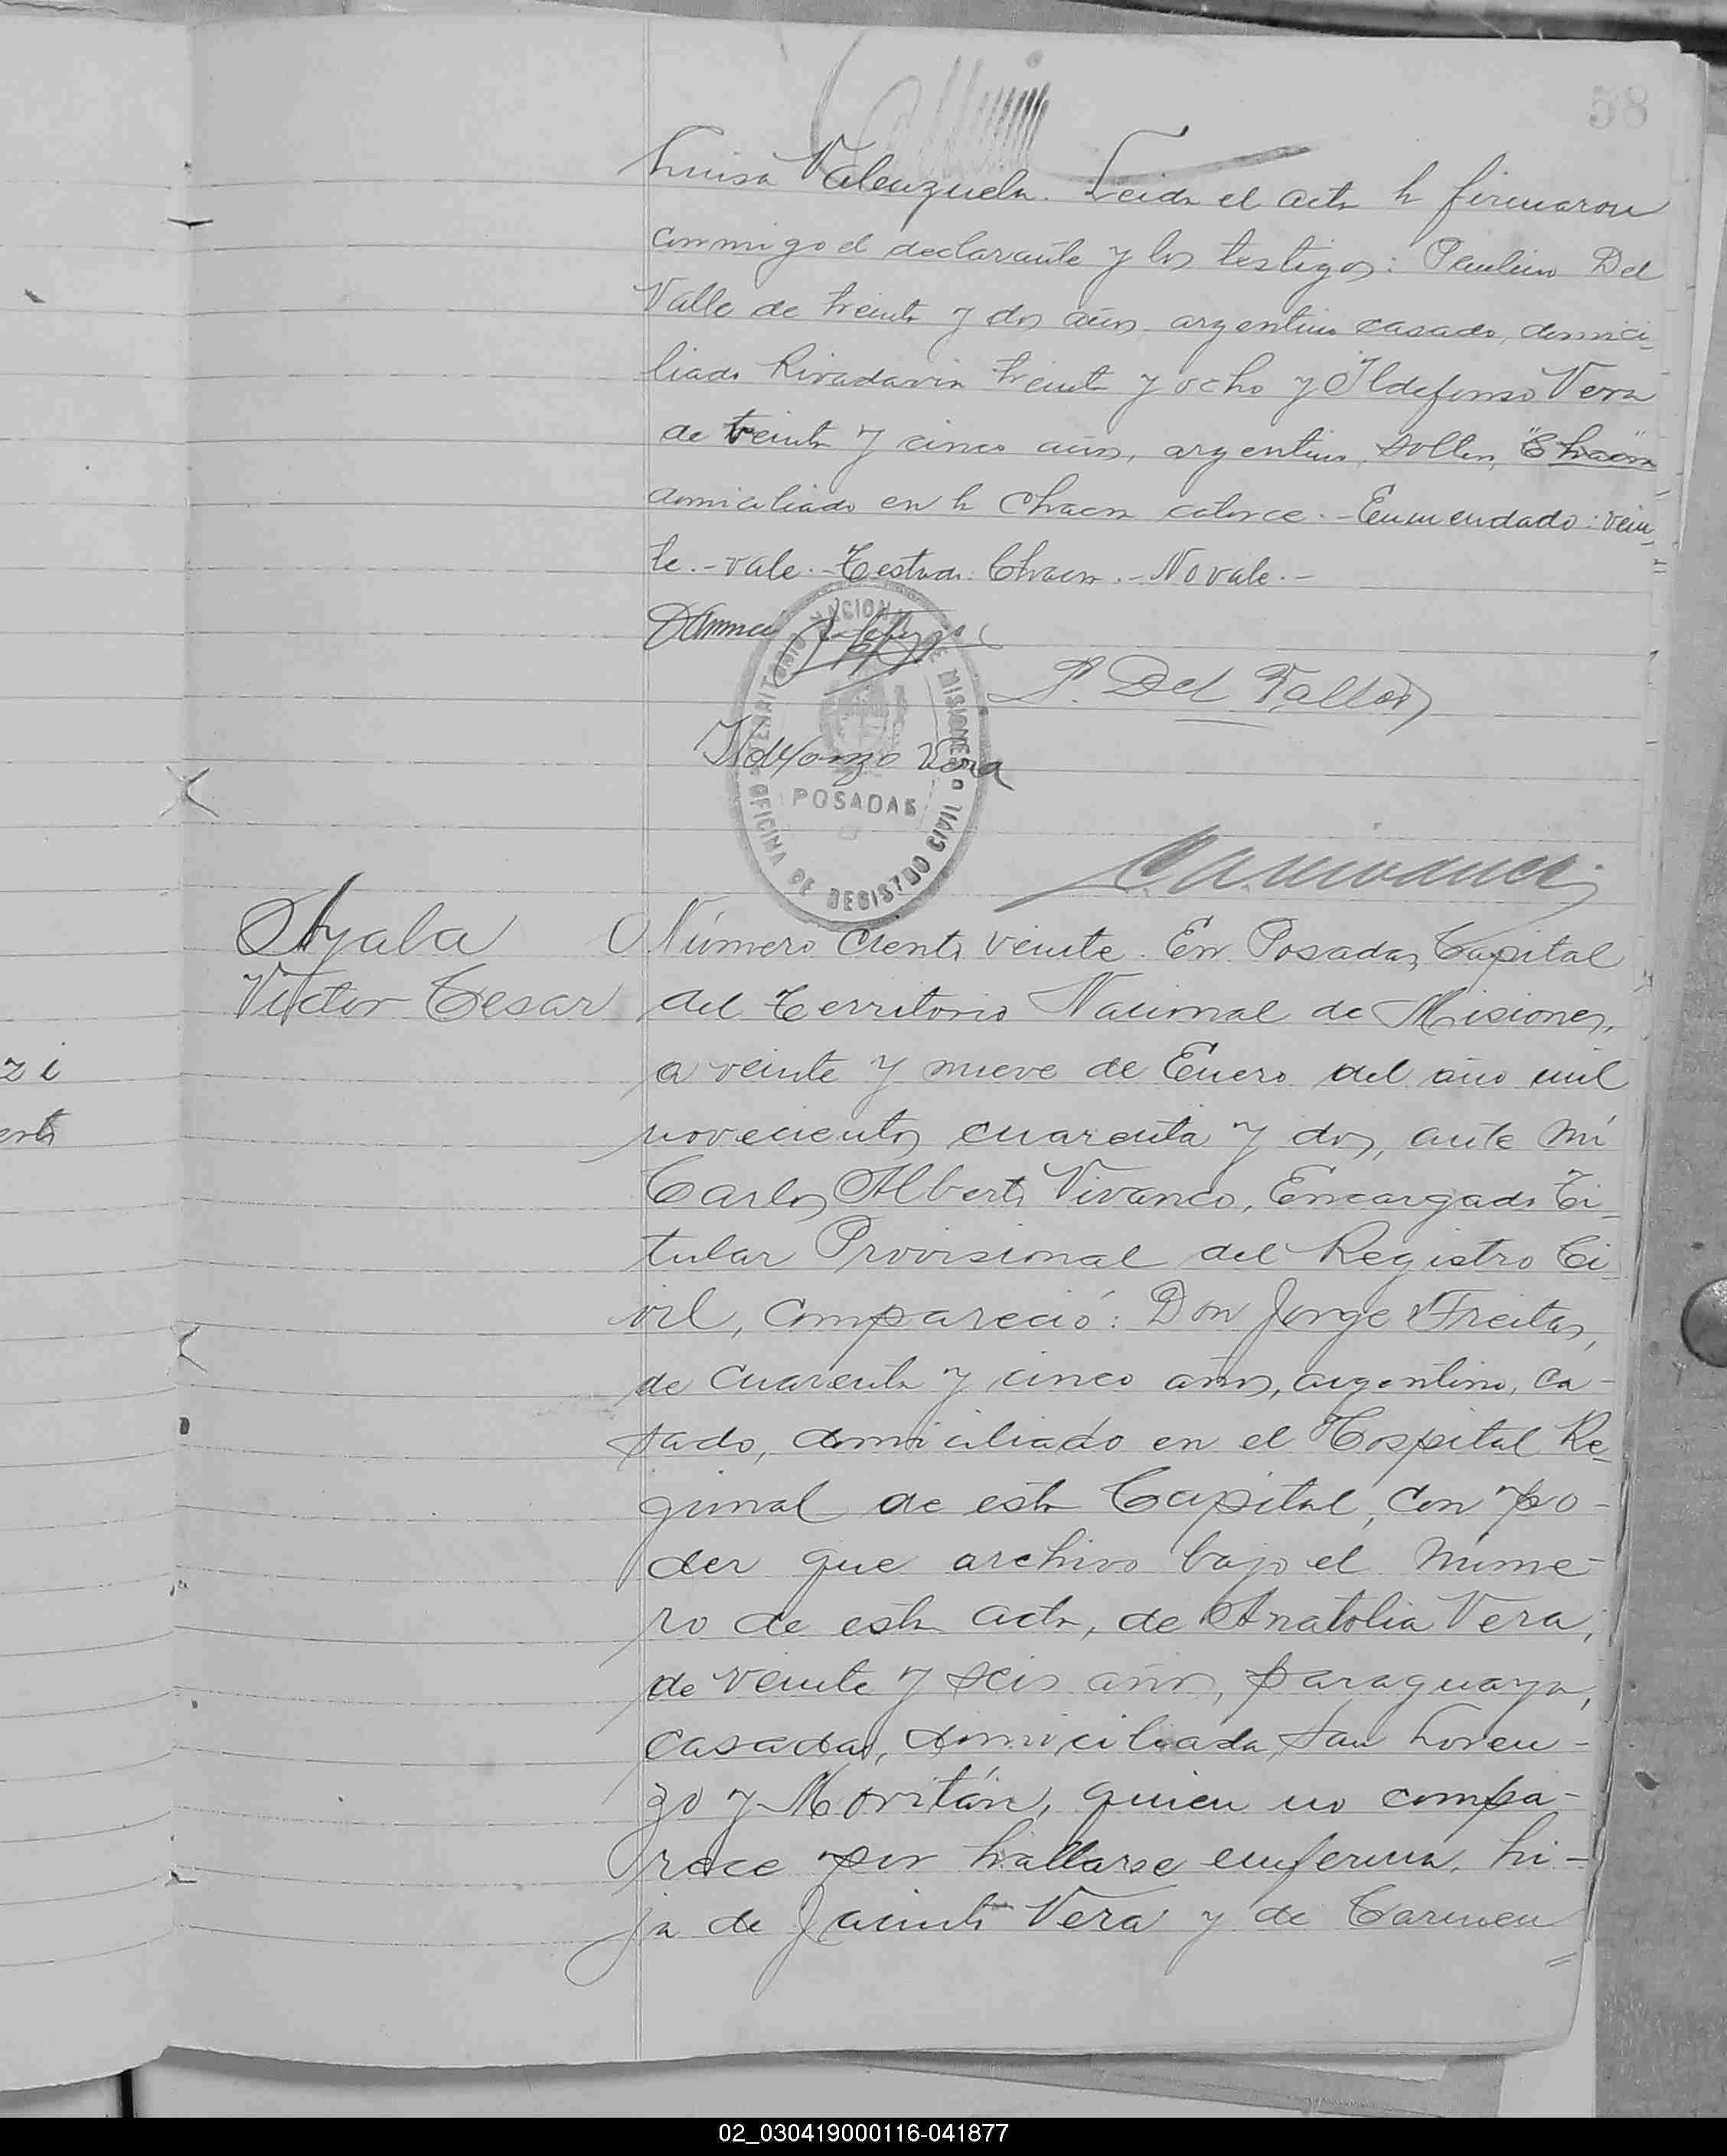 58
Luisa Valenzuela. Leida el acta la firmaron
conmigo el declarante y los testigos: Paulino Del
Valle de treinta y dos años, argentino casado, domici-
liado Rivadavia treinta y ocho y Ildefonso Vera
de veinte y cinco años, argentino, soltero, "Chacra"
domiciliado en la Chacra catorce.- Enmendado: vein-
te.- vale.- Testado: Chacra.- No vale.-
P. Del Valle
Ildefonzo Vera
TERRITORIO NACIONAL DE MISIONES
POSADAS
OFICINA DE REGISTRO CIVIL
Ayala
Victor Cesar
Número Ciento veinte. En Posadas, Capital
del Territorio Nacional de Misiones,
a veinte y nueve de Enero del año mil
novecientos cuarenta y dos, ante mí
Carlos Alberto Vivanco, Encargado Ti-
tular Provisional del Registro Ci-
vil, compareció: Don Jorge Freitas,
de cuarenta y cinco años, argentino, ca-
sado, domiciliado en el Hospital Re-
gional de esta Capital, con po-
der que archivo bajo el núme-
ro de esta acta, de Anatolia Vera,
de veinte y seis años, paraguaya,
casada, domiciliada, San Loren-
zo y Moritán, quien no compa-
rece por hallarse enferma, hi-
ja de Jacinto Vera y de Carmen
zi
erto
02_030419000116-041877